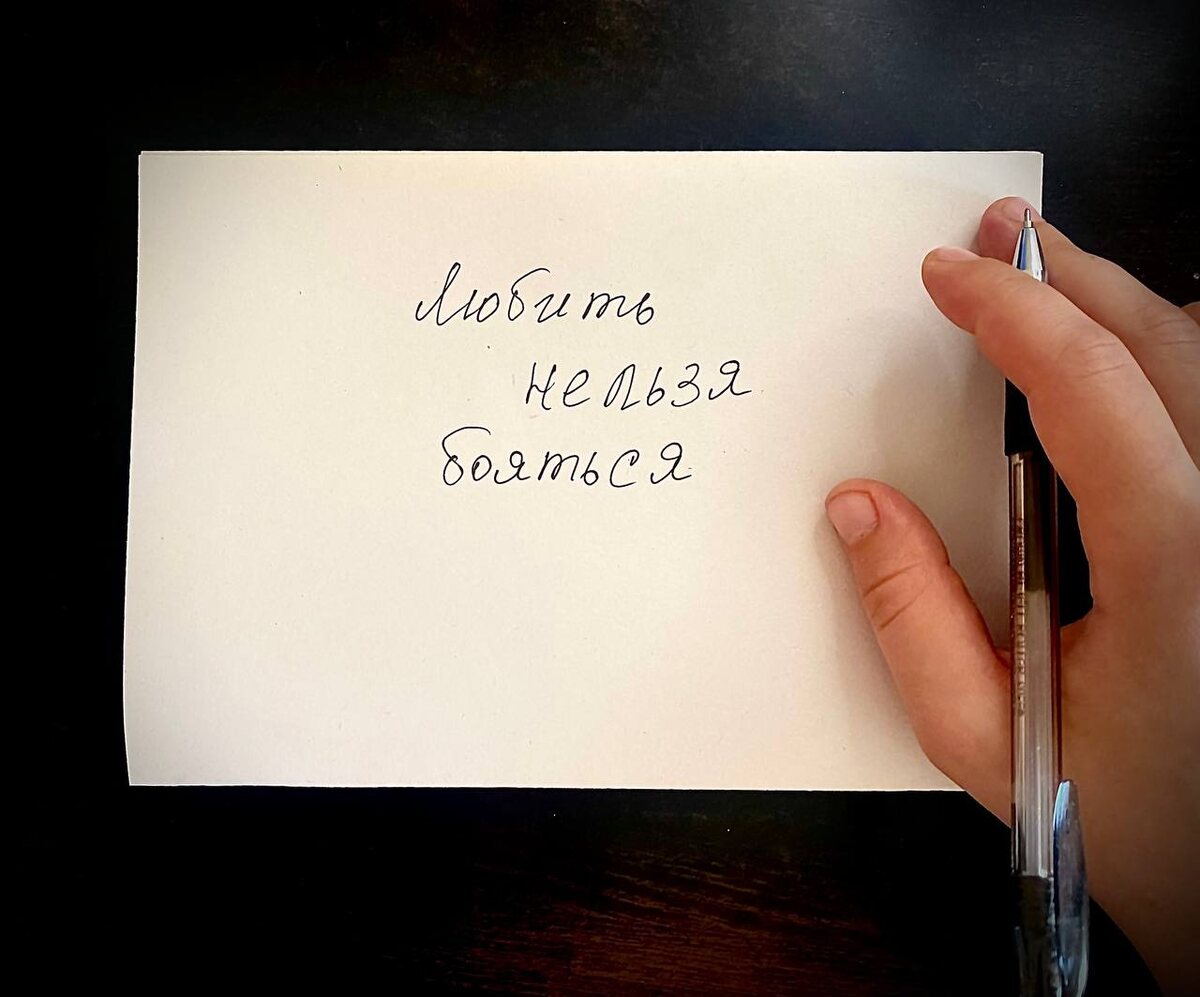 Любить
нельзя
бояться